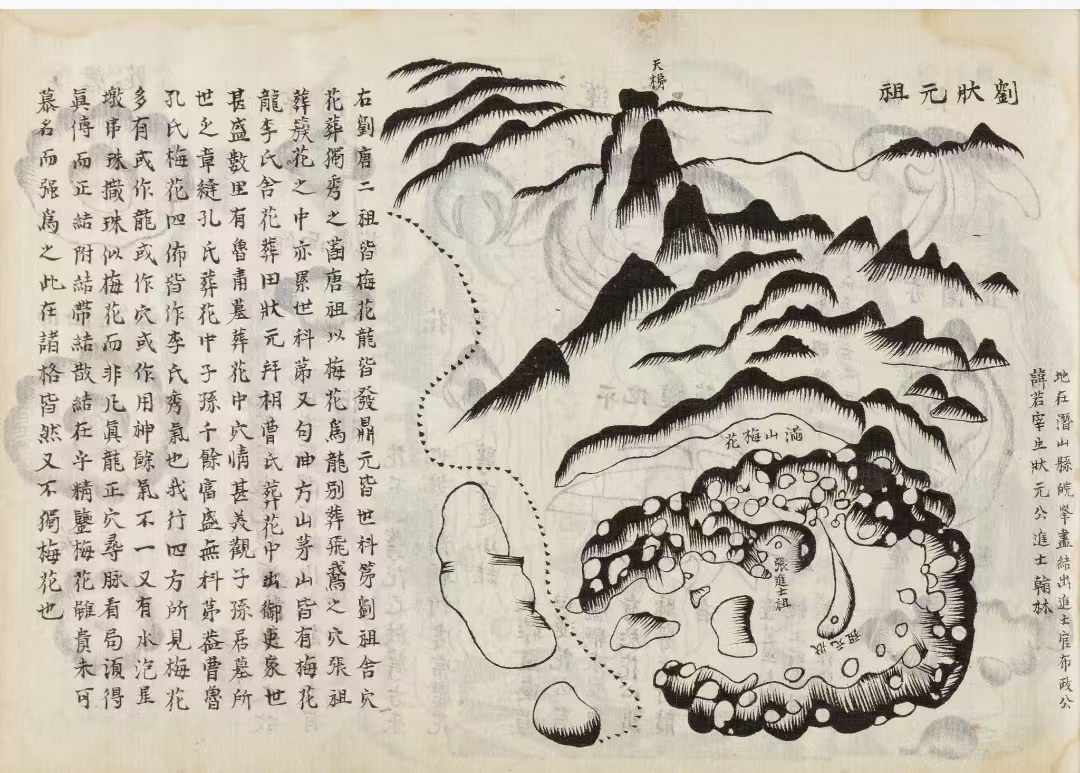 劉狀元祖
地在潛山縣皖峯盡結出進士官布政公
諱若宰生狀元公進士翰林
滿山梅花
張進士祖
狀元祖
右劉唐二祖皆梅花龍皆發鼎元皆世科第劉祖舍穴
花葬獨秀之菌唐祖以梅花爲龍别葬飛鵞之穴張祖
葬簇花之中亦累世科第又句曲方山茅山皆有梅花
龍李氏舍花葬田狀元拜相曹氏葬花中出御吏家世
甚盛數里有魯肅墓葬花中穴情甚美觀子孫居墓所
世之章縫孔氏葬花中子孫千餘富盛無科第葢曹魯
孔氏梅花四佈皆作李氏秀氣也我行四方所見梅花
多有或作龍或作穴或作用神餘氣不一又有水泡星
墩串珠撒珠似梅花而非凡眞龍正穴尋脉看局須得
眞傳而正結附結帶結散結在乎精鑒梅花雖貴未可
慕名而强爲之此在諸格皆然又不獨梅花也